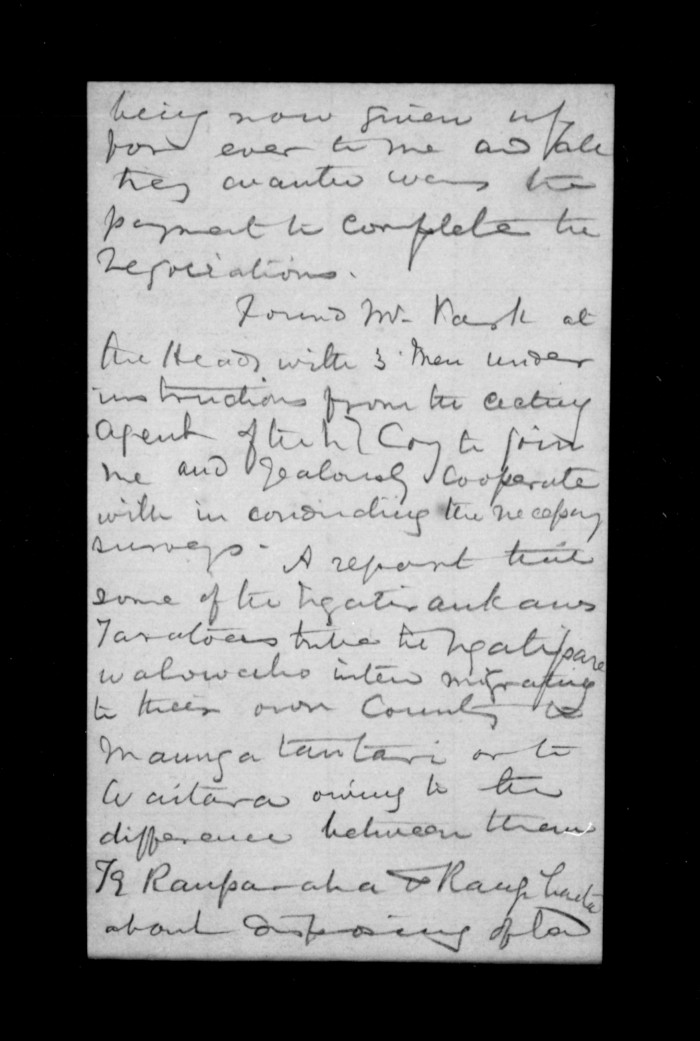 being now given up
for ever to me and all
they wanted was the
payment to complete the
negociations.
Found Mr. Park at
the Heads with 3 Men under
instructions from the acting
Agent of the N Z Coy to join
me and zealously cooperate
with in conducting the necessary
surveys. A report that
some of the Ngatiraukawas
Taratoas tribe the Ngatipare
wahowaho intend migrating
to their own County to
Maungatautari or to
Waitara owing to the
difference between them
Te Rauparaha & Rangihaeta
about disposing of La